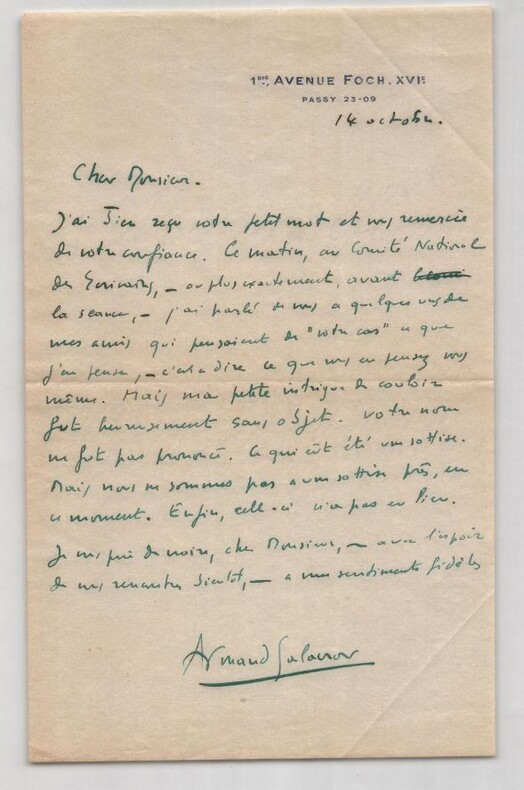 1BIS, AVENUE FOCH. XVIE
PASSY 23-09
14 octobre.
Cher Monsieur.
J'ai bien reçu votre petit mot et vous remercie
de votre confiance. Ce matin, au Comité National
des Ecrivains, – ou plus exactement, avant
la séance, – j'ai parlé de vous a quelques uns de
mes amis qui pensaient de "votre cas" ce que
j'en pense, – c'est a dire ce que vous en pensez vous
même. Mais ma petite intrigue de couloir
fut heureusement sans objet. Votre nom
ne fut pas prononcé. Ce qui eût été une sottise.
Mais nous ne sommes pas a une sottise près, en
ce moment. Enfin, celle-ci n'a pas eu lieu.
Je vous prie de croire, cher Monsieur, – avec l'espoir
de vous rencontrer bientôt, – a mes sentiments fidèles
Armand Salacrou